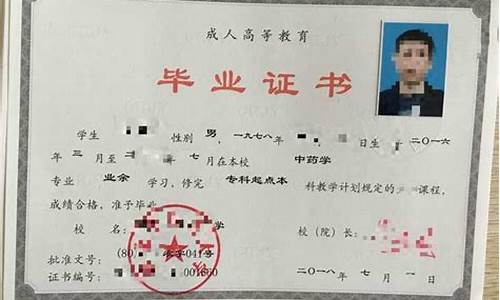 成人高等教育
毕业证书
学生 性别 男，一九七八年 日生 二〇一六
年三月至二 年 七月在本校 中药学
专业 业余 学习，修完 专科起点本 科教学计划规定的 课程，
成绩合格，准予毕业
校 名： 学 校（院）长：
批准文号： (80) 字041号
证书编号： 001660 二〇一八年 七月 一日